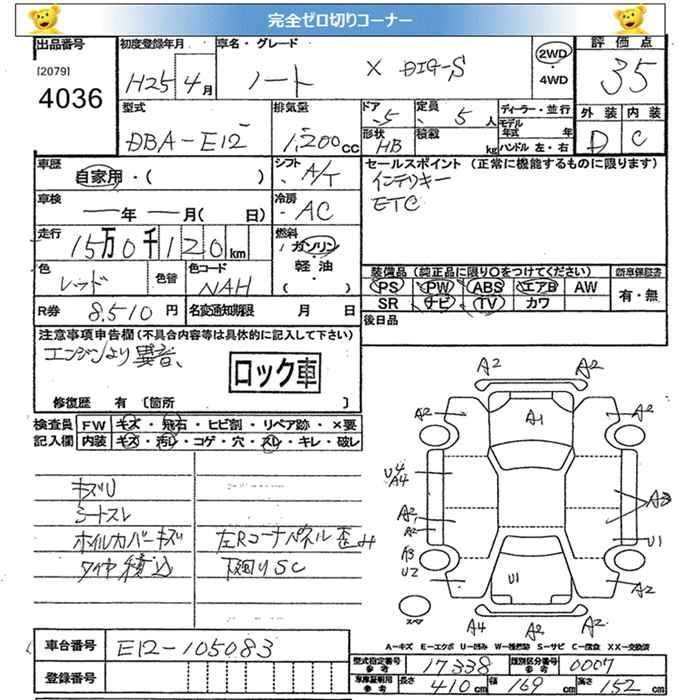 完全ゼロ切りコーナー
出品番号 初度登録年月 車名・グレード 評価点
[2079] H25 4月 ノート X DIG-S 2WD 35
4036 ・4WD
型式 排気量 ドア 定員 ディーラー・並行 外装 内装
DBA-E12 1,200cc 5 5人 モデル年式 年 D C
形状 HB 積載 kg ハンドル 左・右
車歴 シフト セールスポイント (正常に機能するものに限ります)
自家用・( ) A/T インテリキー
車検 冷房 ETC
年 月( 日) AC
走行 燃料
15万0千120km ガソリン
軽油
色 色替 色コード 装備品(純正品に限り○をつけてください) 新車保証書
レッド NAH PS PW ABS エアB AW 有・無
R券 8,510円 名変通知期限 月 日 SR ナビ TV カワ
注意事項申告欄(不具合内容等は具体的に記入して下さい) 後日品
エンジンより異音、
ロック車
修復歴 有 〔箇所 〕
検査員 FW キズ・飛石・ヒビ割・リペア跡・×要
記入欄 内装 キズ・汚レ・コゲ・穴・スレ・キレ・破レ
A2 A2
A2 A1 A2
キズU
U4
A4
シートスレ
A2
ホイルカバーキズ 左Rコーナパネル歪み
A2 U1
タイヤ積込 下廻りSC
U2 U1 A2
スペア
A4 A2 A2
A-キズ E-エクボ U-凹み W-補修跡 S-サビ C-腐食 XX-交換済
車台番号 E12-105083
型式指定番号 参考 17338 類別区分番号 参考 0007
登録番号
車庫証明用 参考 長さ 410cm 幅 169cm 高さ 152cm